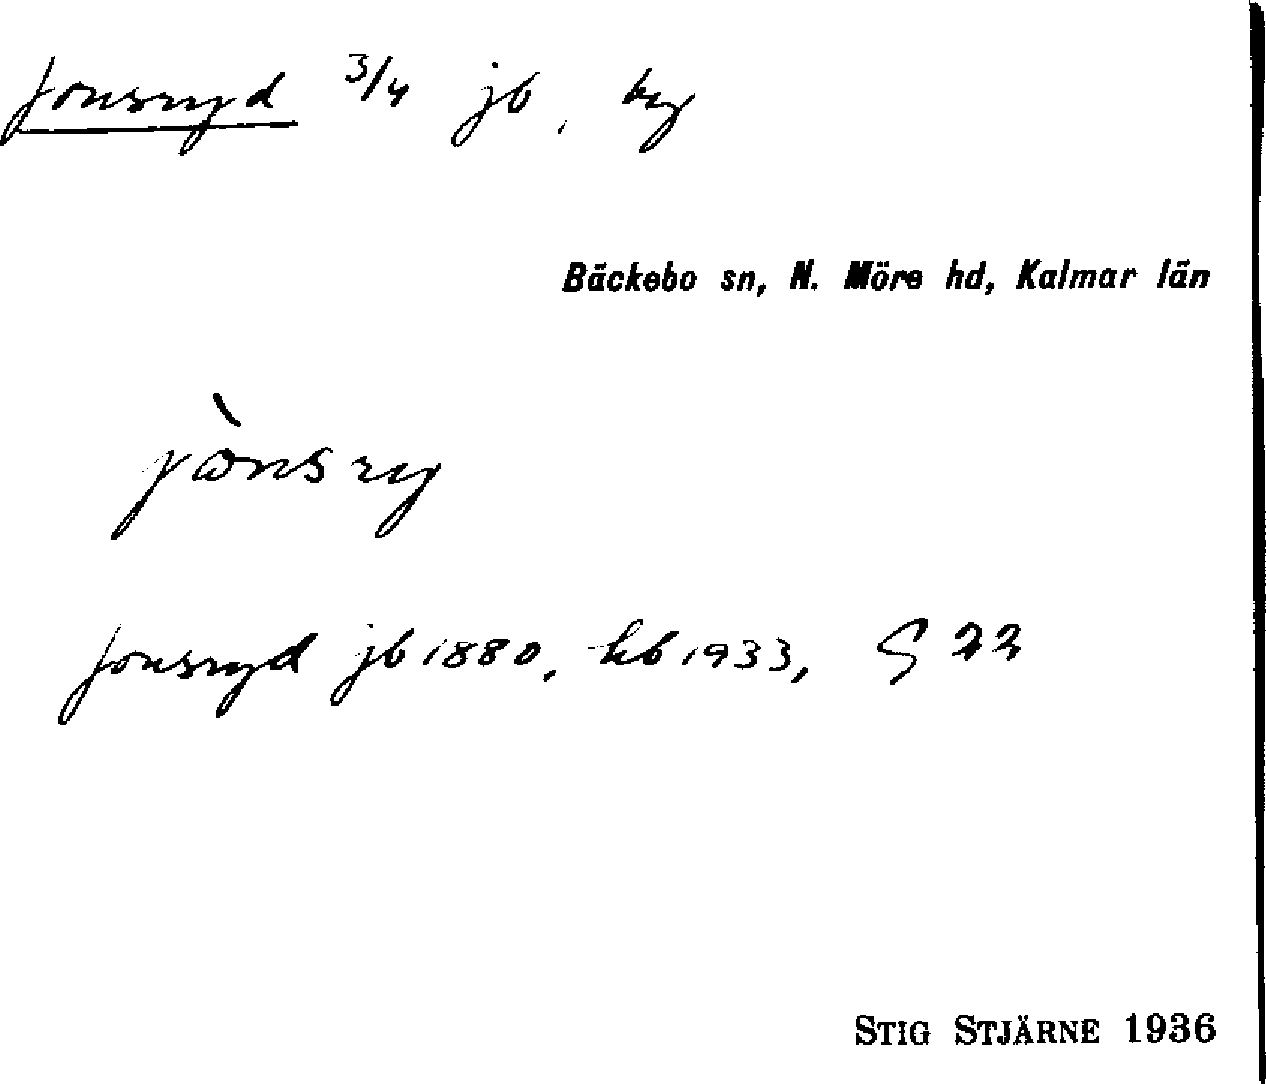 Jonsryd 3/4 jb, by
Bäckebo sn, N. Möre hd, Kalmar län
jònsry
Jonsryd jb 1880, hb 1933, G 22
STIG STJÄRNE 1936